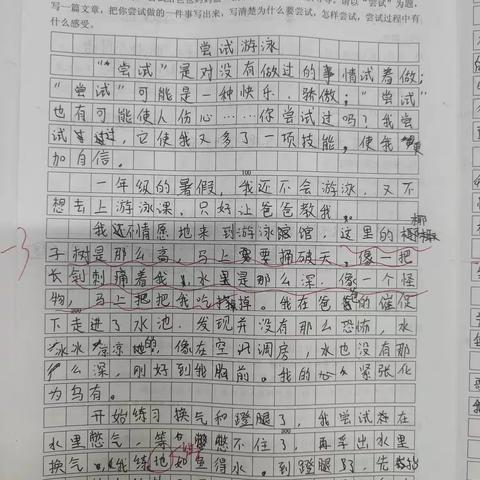 写一篇文章，把你尝试做的一件事写出来，写清楚为什么要尝试，怎样尝试，尝试过程中有
什么感受。
尝试游泳
“尝试”是对没有做过的事情试着做；
“尝试”可能是一种快乐、骄傲；“尝试”
也有可能使人伤心……你尝试过吗？我尝
试过，它使我又多了一项技能，使我更
加自信。
100
一年级的暑假，我还不会游泳，又不
想去上游泳课，只好让爸爸教我。
我不情愿地来到游泳馆，这里的椰
子树是那么高，马上要捅破天，像一把
长剑刺痛着我，水里是那么深，像一个怪
物，马上把我吃掉。我在爸爸的催促
200
下走进了水池，发现并没有那么恐怖，水
冰冰凉凉的，像在空调房，水也没有那
么深，刚好到我胸前。我的紧张化
为乌有。
开始练习换气和蹬腿了，我尝试着在
水里憋气，等憋不住了，再浮出水里
300
换气，我练地如鱼得水。到蹬腿了，先
-3